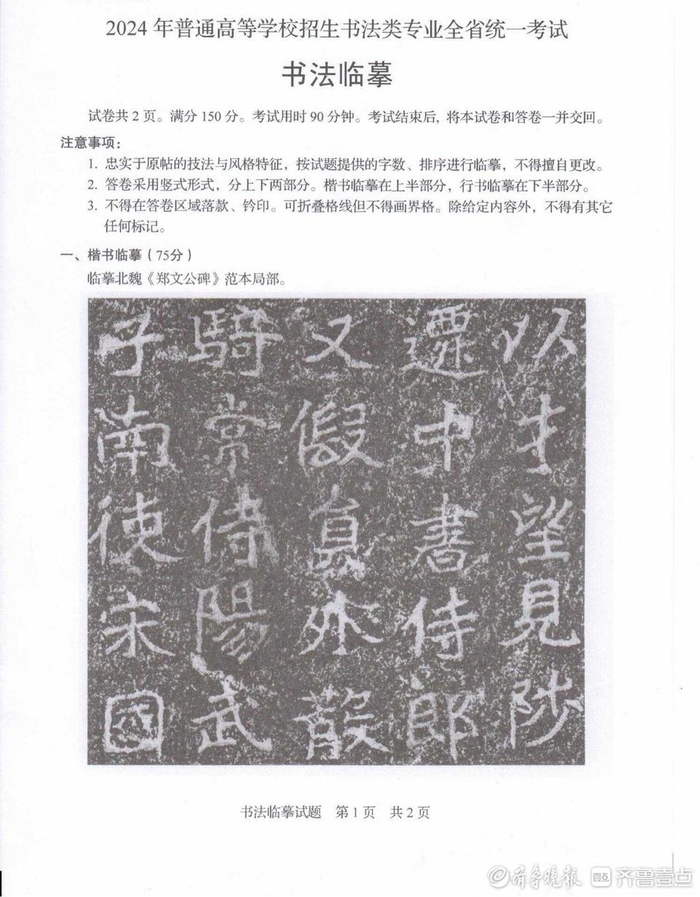 2024 年普通高等学校招生书法类专业全省统一考试
书法临摹
试卷共 2 页。满分 150 分。考试用时 90 分钟。考试结束后, 将本试卷和答卷一并交回。
注意事项：
1. 忠实于原帖的技法与风格特征，按试题提供的字数、排序进行临摹，不得擅自更改。
2. 答卷采用竖式形式，分上下两部分。楷书临摹在上半部分，行书临摹在下半部分。
3. 不得在答卷区域落款、钤印。可折叠格线但不得画界格。除给定内容外，不得有其它
任何标记。
一、楷书临摹（75分）
临摹北魏《郑文公碑》范本局部。
以才望見陟
遷中書侍郎
又假員外散
騎常侍陽武
子南使宋國
书法临摹试题 第 1 页 共 2 页
齐鲁晚报 齐鲁壹点